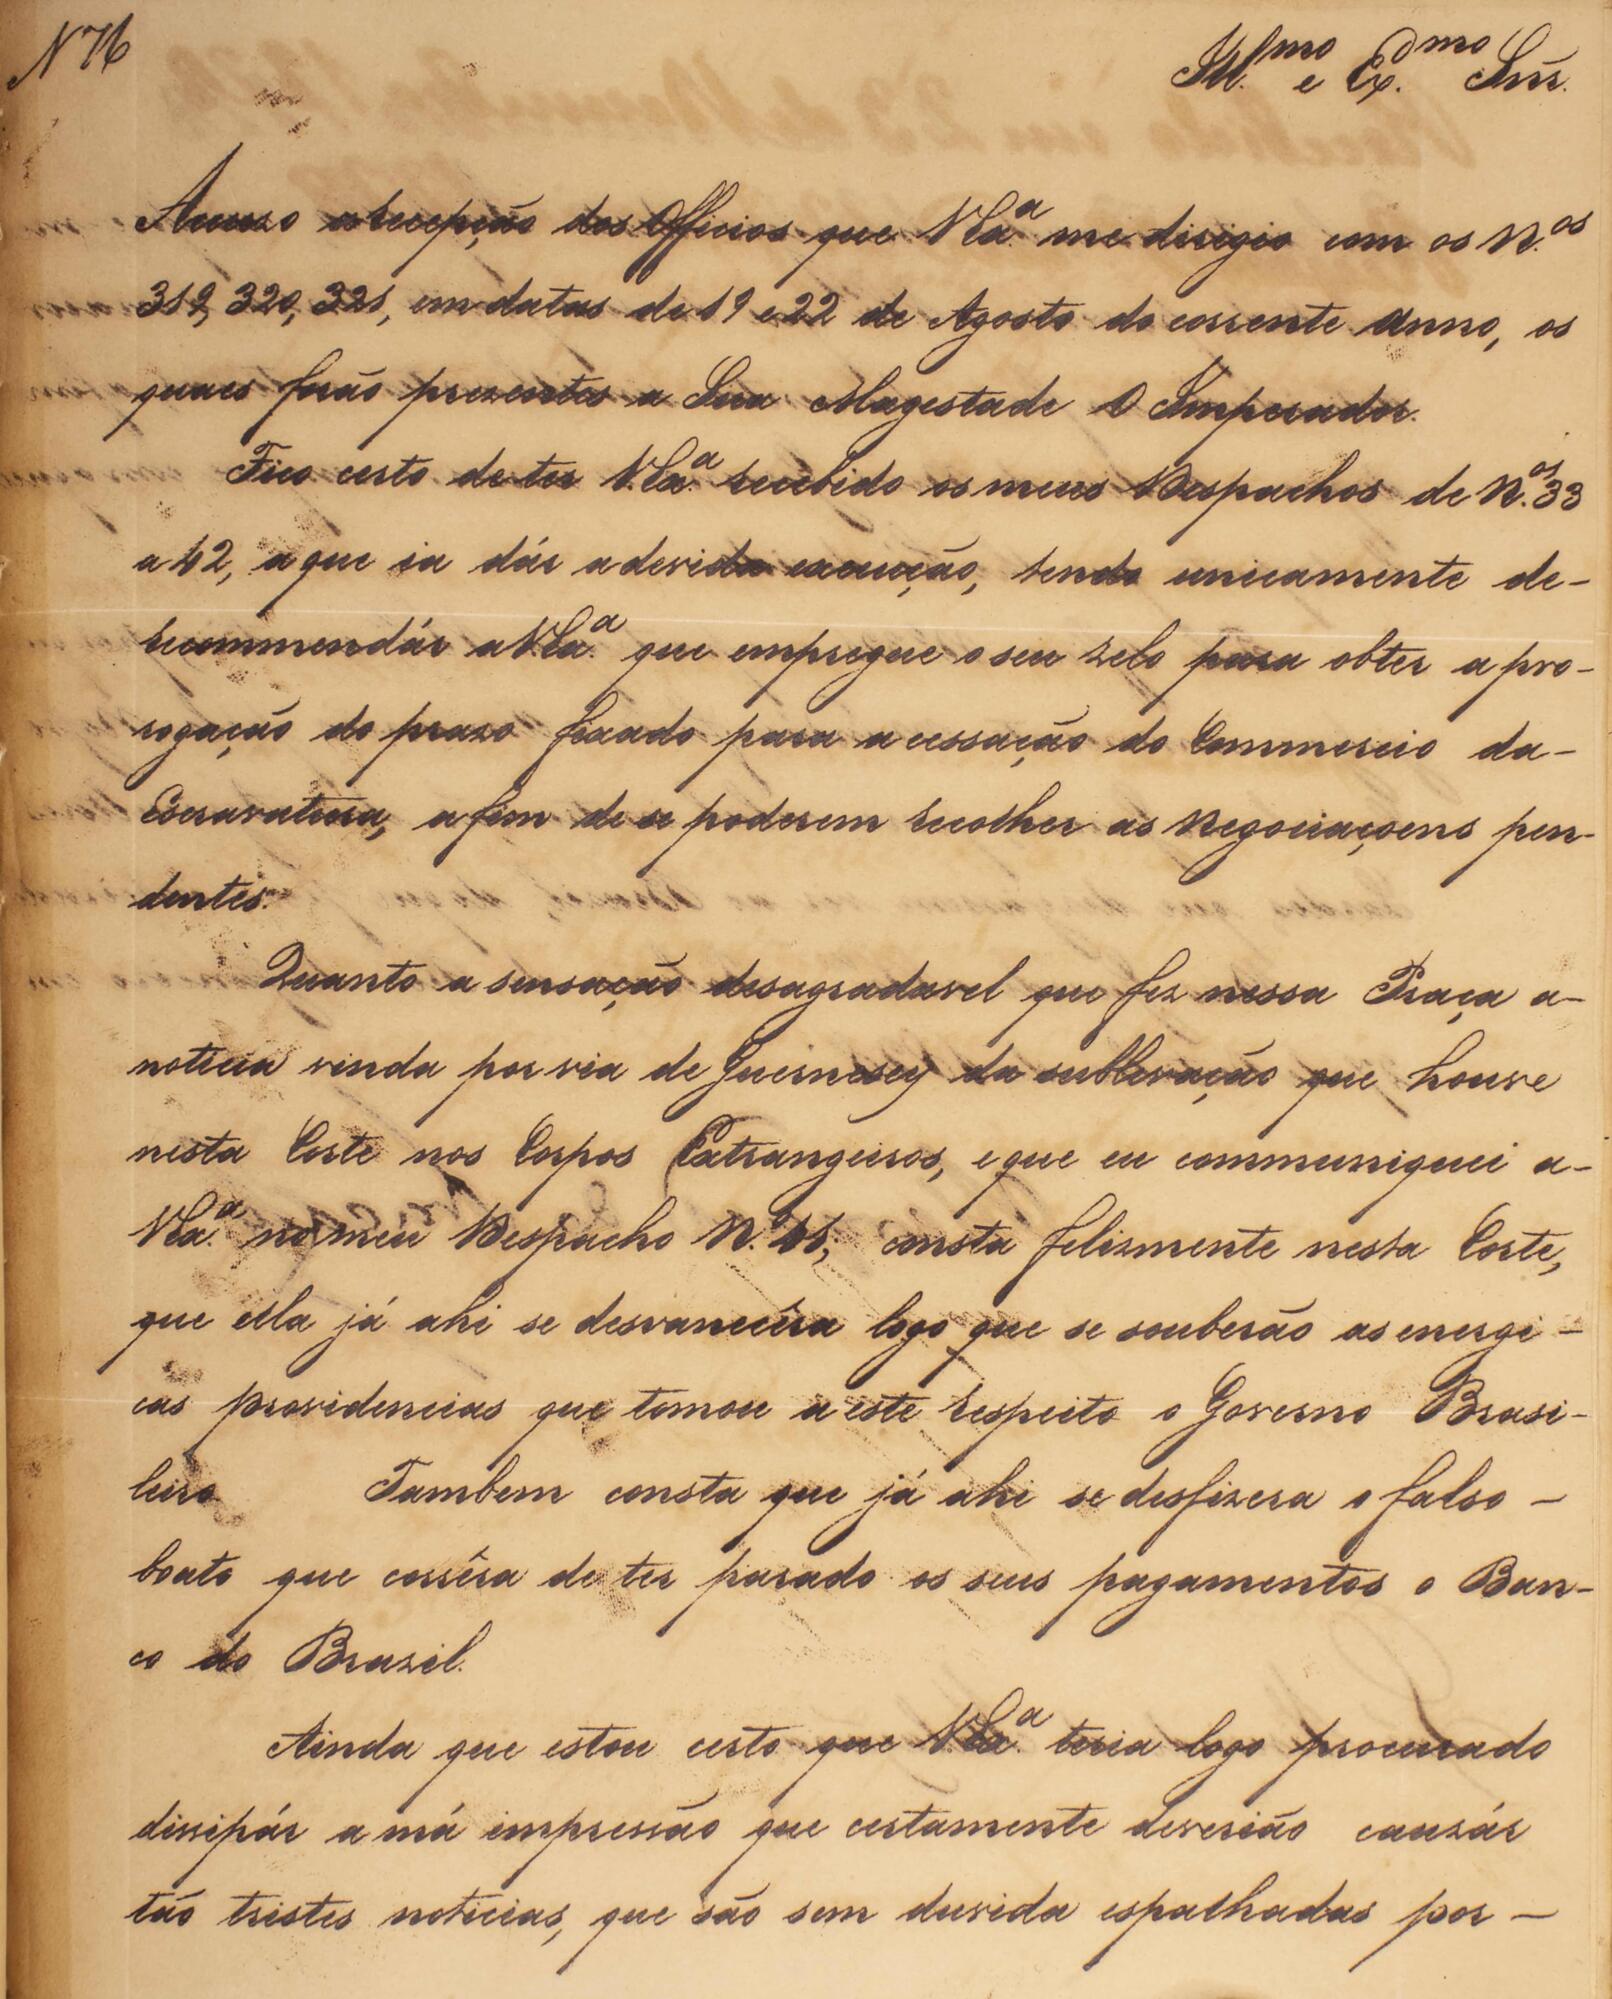 N 76
Ill.mo e Ex.mo Snr.
Accuzo a recepção dos Officios que V.Ex.a me dirigio com os N.os
319, 320, 321, em datas de 19 e 22 de Agosto do corrente anno, os
quaes forão prezentes a Sua Magestade O Imperador.
Fico certo de ter V.Ex.a recebido os meus Despachos de N.os 33
a 42, a que ia dár a devida execução, tendo unicamente de-
recommendár a V.Ex.a que empregue o seu zelo para obter a pro-
rogação do prazo fixado para a cessação do Commercio da-
Escravatura, a fim de se poderem recolher as negociaçoens pen-
dentes.
Quanto a sensação desagradavel que fez nessa Praça a-
noticia vinda por via de Guernesey da sublevação que houve
nesta Corte nos Corpos Extrangeiros, e que eu communiquei a-
V.Ex.a no meu Despacho N.º consta felizmente nesta Corte,
que ella já ahi se desvanecêra logo que se souberão as energi-
cas providencias que tomou a este respeito o Governo Brasi-
leiro Tambem consta que já ahi se desfizera o falso -
boato que corrêra de ter parado os seus pagamentos o Ban-
co do Brazil.
Ainda que estou certo que V.Ex.a teria logo procurado
dissipár a má impressão que certamente deverião cauzár
tão tristes noticias, que são sem duvida espalhadas por -